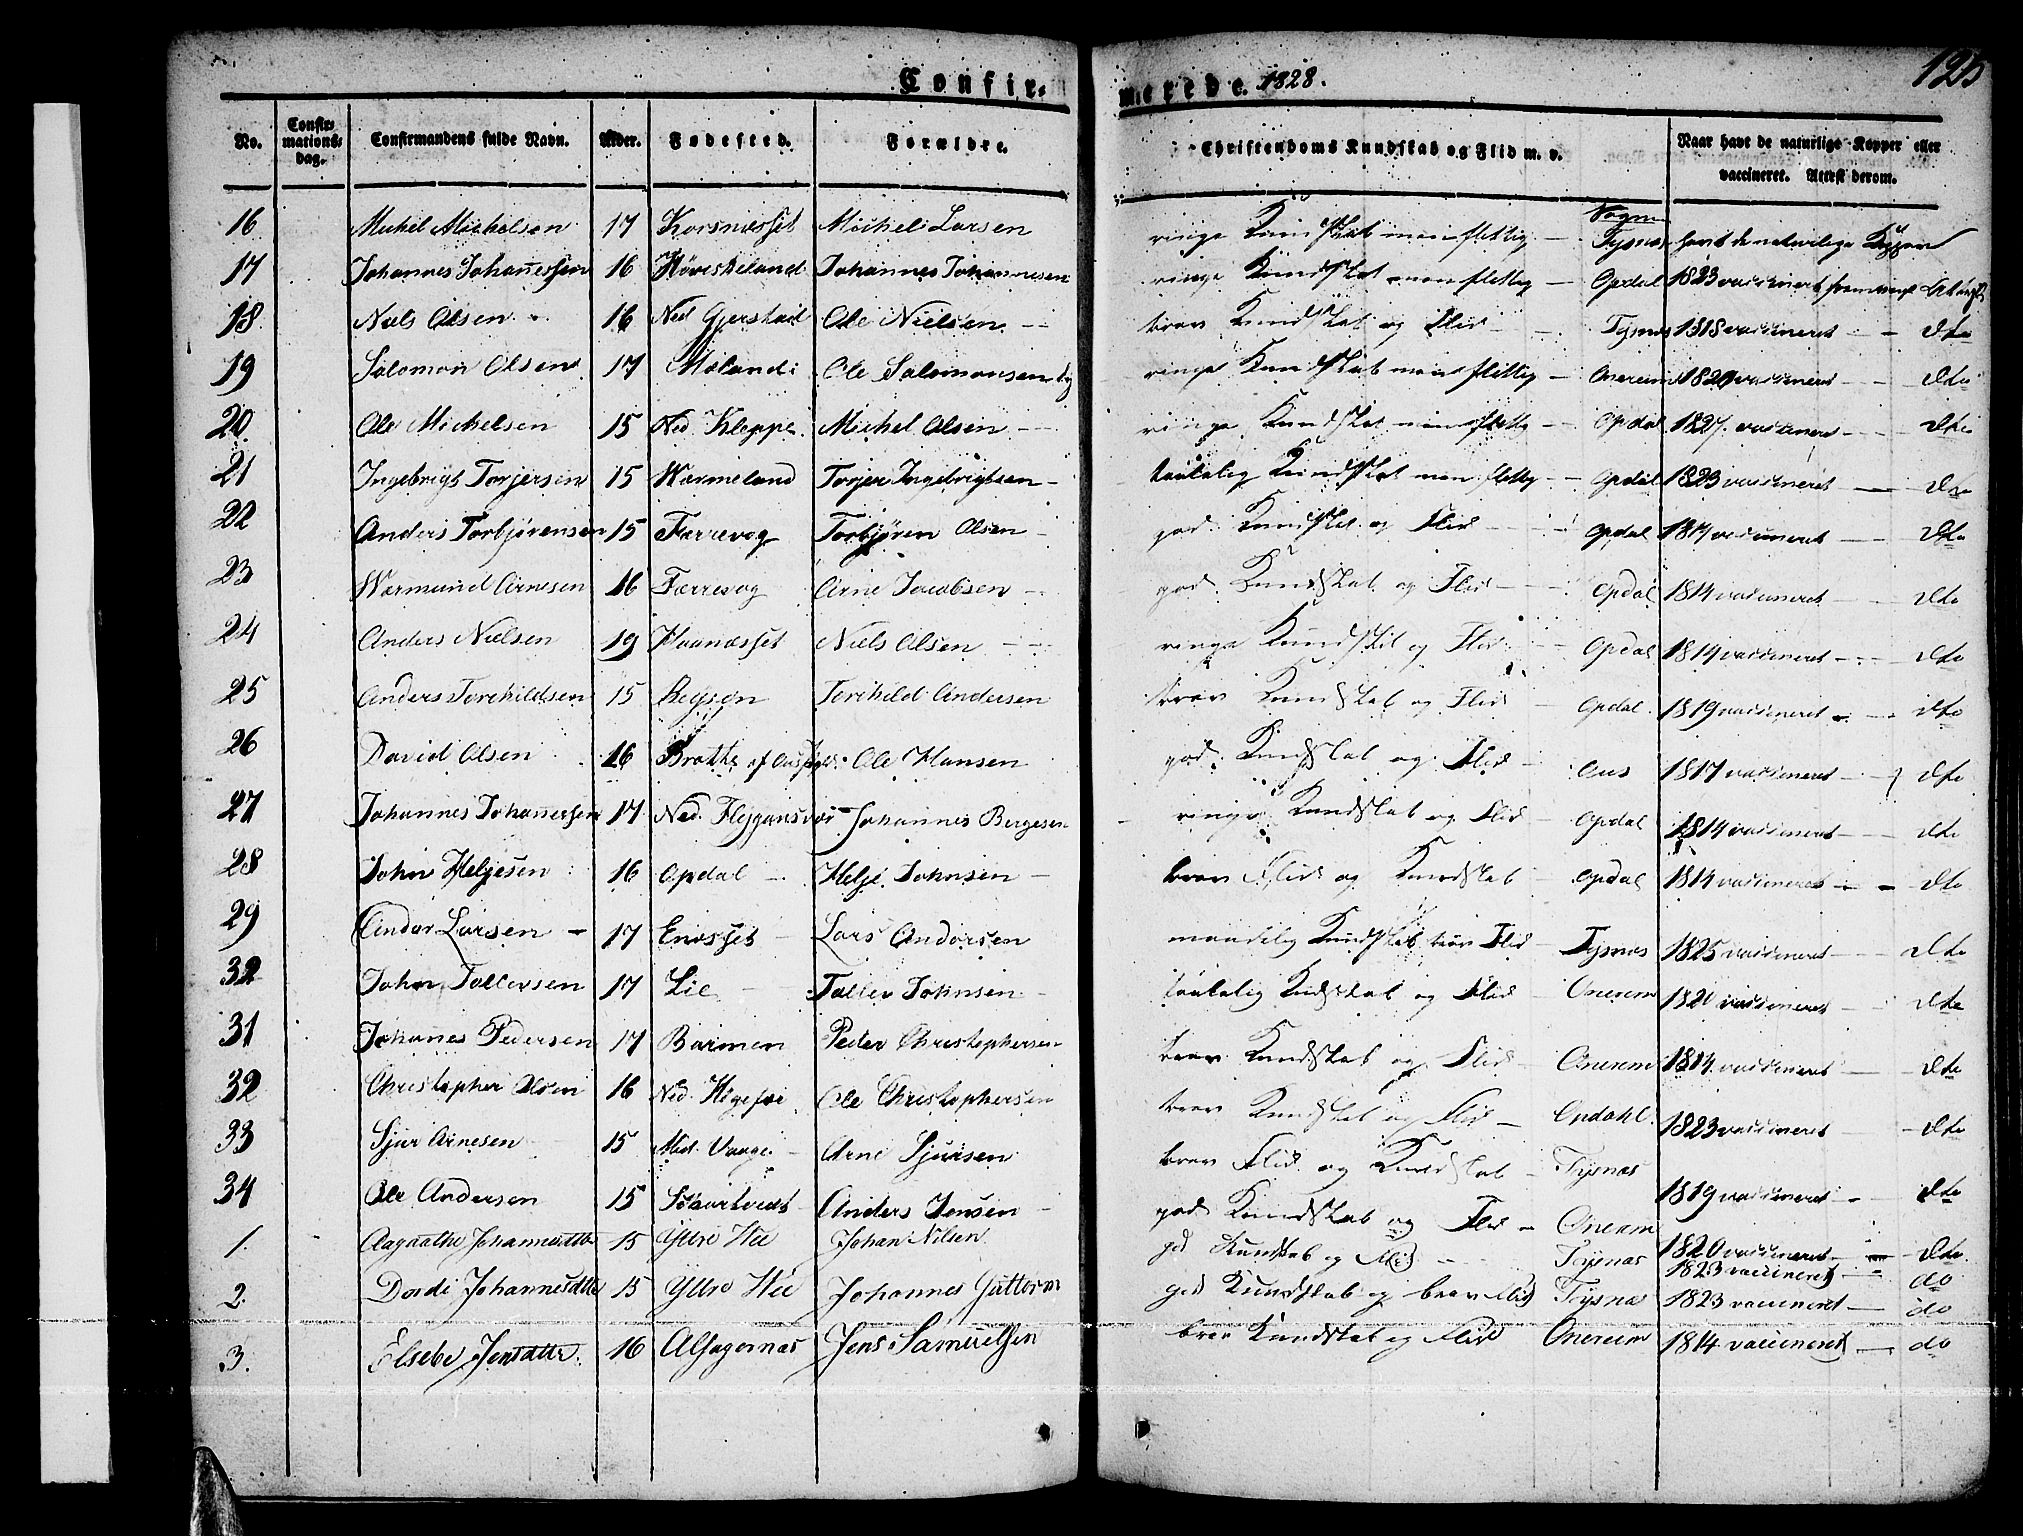 Confir- merede. 1828. 125
No. Confirmationsdag. Confirmandens fulde Navn. Alder. Fødested. Forældre. Christendoms Kundskab og Flid m. v. Naar havt de naturlige Kopper eller vaccineret. Attest derom.
Sogne
16 Michel Michelsen 17 Korsnesset Michel Larsen ringe Kundskab men flittig — Tysnes havt de naturlige Kopper
17 Johannes Johannessen 16 Høviskeland Johannes Johannesen ringe Kundskab men flittig — Opdal 1823 vaccineret
18 Niels Olsen 16 Ned. Gjerstad Ole Nielsen — brav Kundskab og Flid — Tysnes 1818 vaccineret — dto
19 Salomon Olsen 17 Meland Ole Salomonsen ringe Kundskab men flittig — Onereim vaccineret — dto
20 Ole Michelsen 15 Ned. Kleppe Michel Olsen — ringe Kundskab men flittig — Opdal 1827 vaccineret — dto
21 Ingebrigt Torjersen 15 Wermeland Torjer Ingebrigtsen — taalelig Kundskab men flittig — Opdal 1823 vaccineret — dto
22 Anders Torbjørensen 15 Færrevog Torbjøren Olsen — god Kundskab og Flid — Opdal vaccineret — dto
23 Wermund Arnesen 16 Færrevog Arne Jacobsen — god Kundskab og Flid — Opdal 1814 vaccineret — dto
24 Anders Nielsen 19 Haanesset Niels Olsen — ringe Kundskab og Flid — Opdal 1814 vaccineret — dto
25 Anders Torchildsen 15 Regsøn Torchild Andersen brav Kundskab og Flid — Opdal 1819 vaccineret — dto
26 David Olsen 16 Brathe af Ole Hansen god Kundskab og Flid — Ous 1817 vaccineret — dto
27 Johannes Johannessen 17 Ned. Flygansvær Johannes Bergesen ringe Kundskab og Flid — Opdal 1814 vaccineret — dto
28 John Helgesen 16 Opdal — Helge Johnsen — brav Flid og Kundskab — Opdal 1814 vaccineret — dto
29 Ander Larsen — 17 Enesset — Lars Andersen maadelig Kundskab brav Flid — Tysnes 1825 vaccineret — dto
32 John Tollevsen 17 Lie — Tollev Johnsen — taalelig Kundskab og Flid — Onerem vaccineret — dto
31 Johannes Pedersen 17 Barmen Peder Christophersen brav Kundskab og Flid — Onerem 1814 vaccineret — dto
32 Christopher Olsen 16 Ned. Ole Christophersen brav Kundskab og Flid — Opdahl. 1823 vaccineret — dto
33 Sjur Arnesen 15 Ned. Vaage — Arne Sjursen brav Flid og Kundskab — Tysnes 1819 vaccineret — dto
34 Ole Andersen 15 Anders Jensen — god Kundskab og Flid — Onerem 1820 vaccineret — dto
1. Aagaathe Johannesdtr 15 Yttre Wee Johan Nilsen god Kundskab og Flid — Tysnæs 1823 vaccineret — do
2. Dordi Johannesdtr 15 Yttre Wee Johannes Guttorm god Kundskab og brav Flid Tysnæs 1823 vaccineret — do
3. Elsebe Jensdttr. 16 Alsagernæs Jens Samuelsen brav Kundskab og Flid Onereim 1814 vaccineret — do